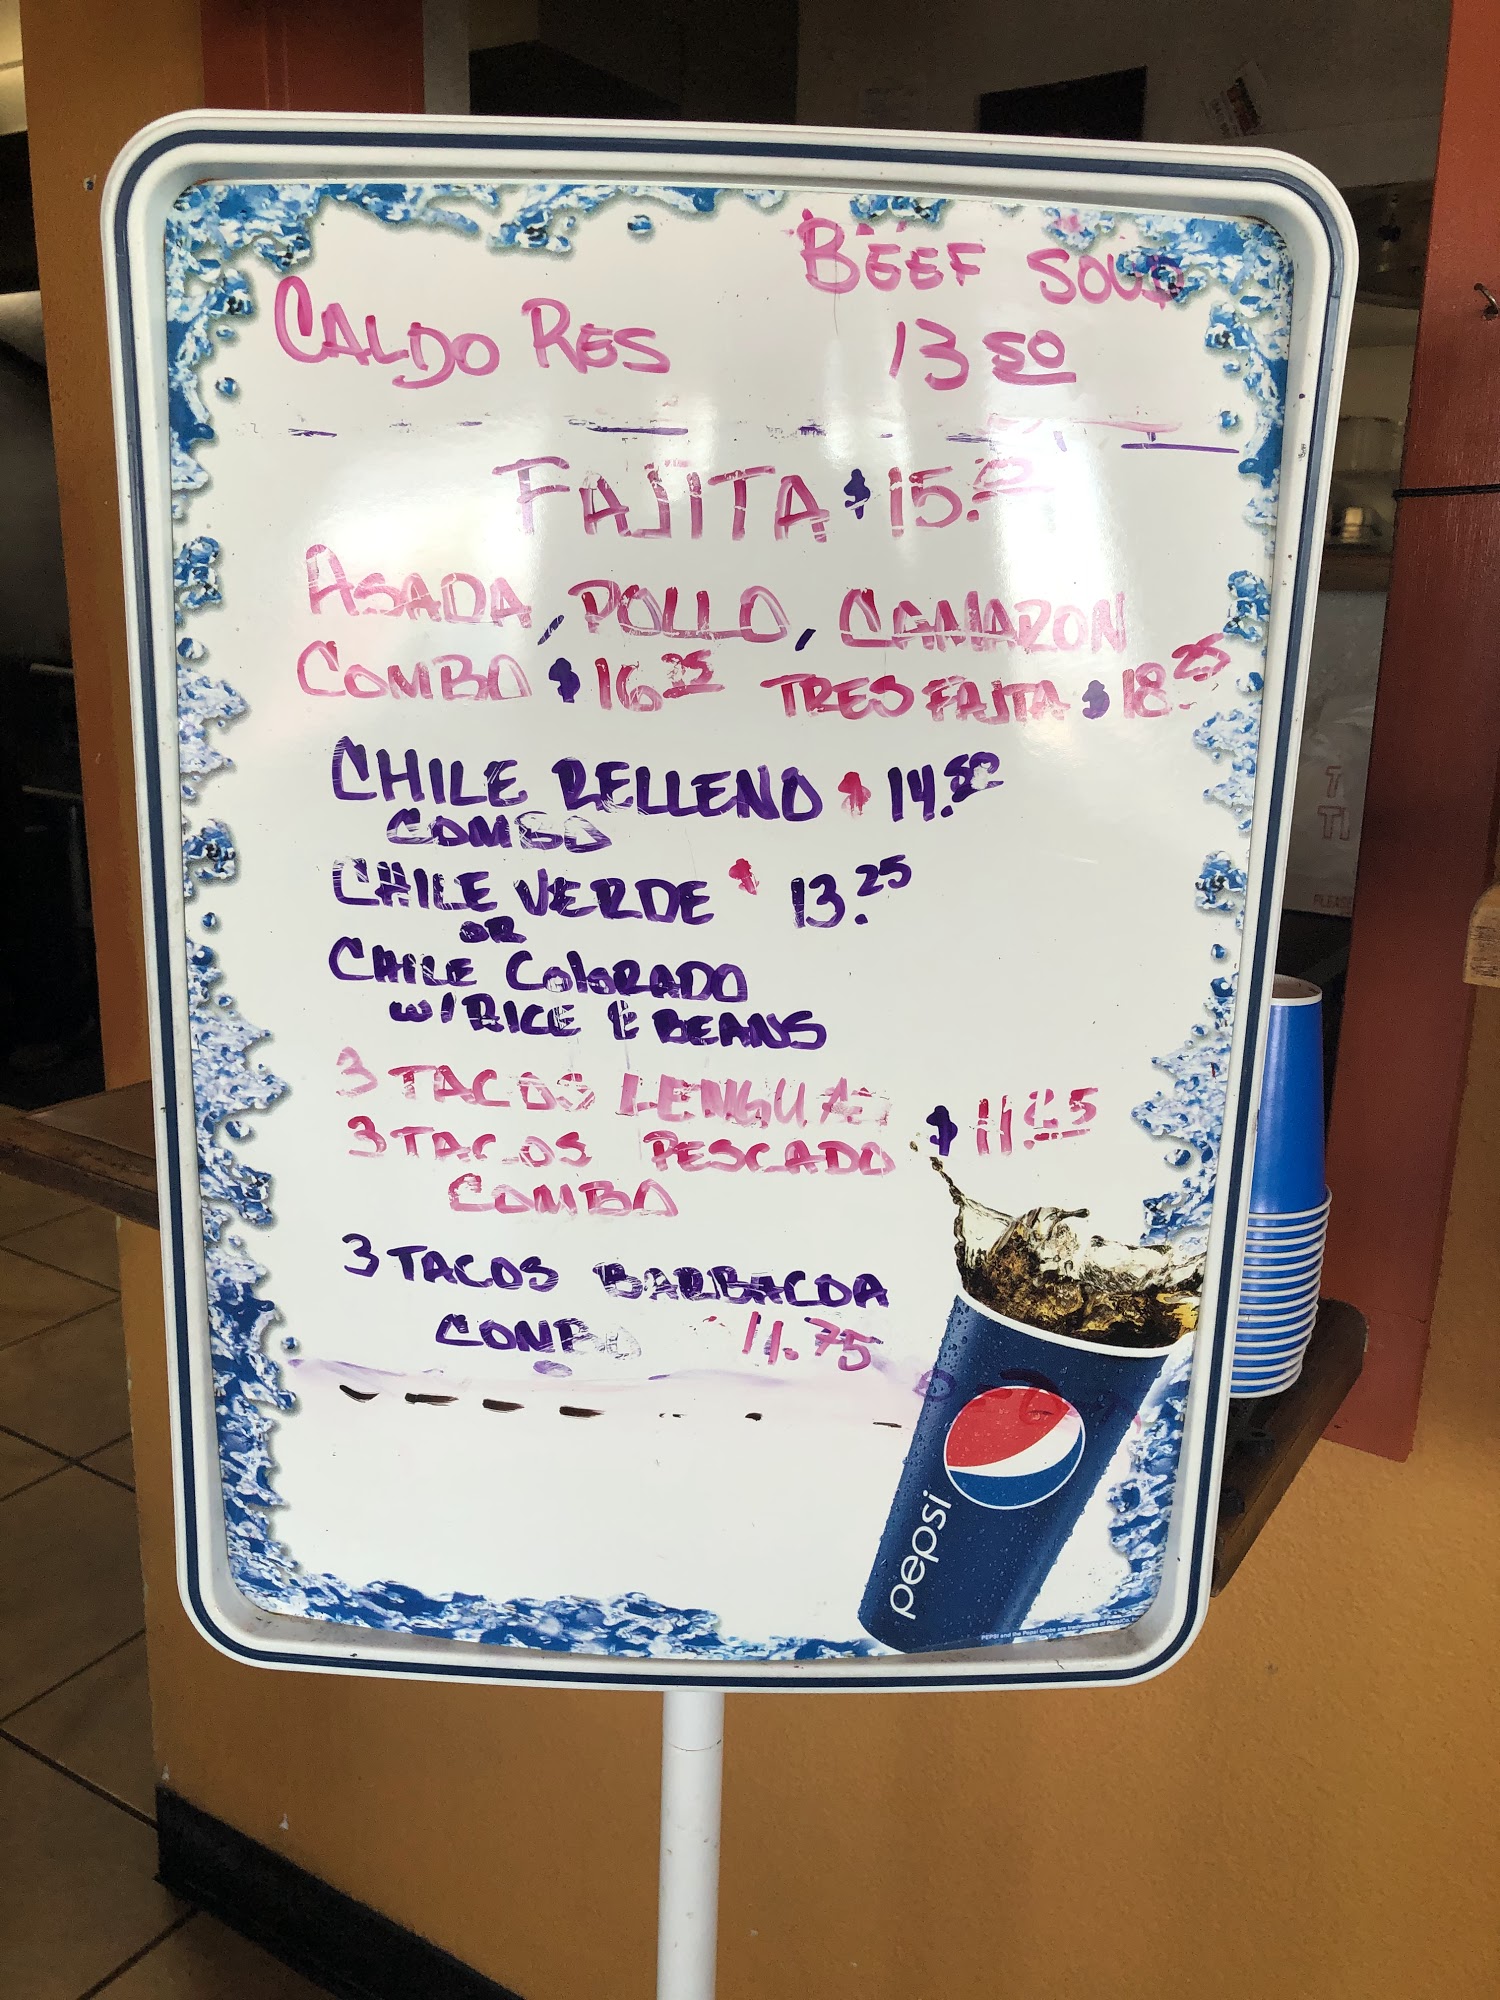 BEEF SOUP
CALDO RES 13 50
FAJITA $15.
ASADA, POLLO, CAMARON
COMBO $16 25 TRES FAJITA $18 25
CHILE RELLENO $14.50
COMBO
CHILE VERDE $ 13.25
OR
CHILE COLORADO
W/ RICE & BEANS
3 TACOS LENGUA
3 TACOS PESCADO $11.
COMBO
3 TACOS BARBACOA
COMBO 11.75
pepsi
PEPSI and the Pepsi Globe are trademarks of PepsiCo, Inc.